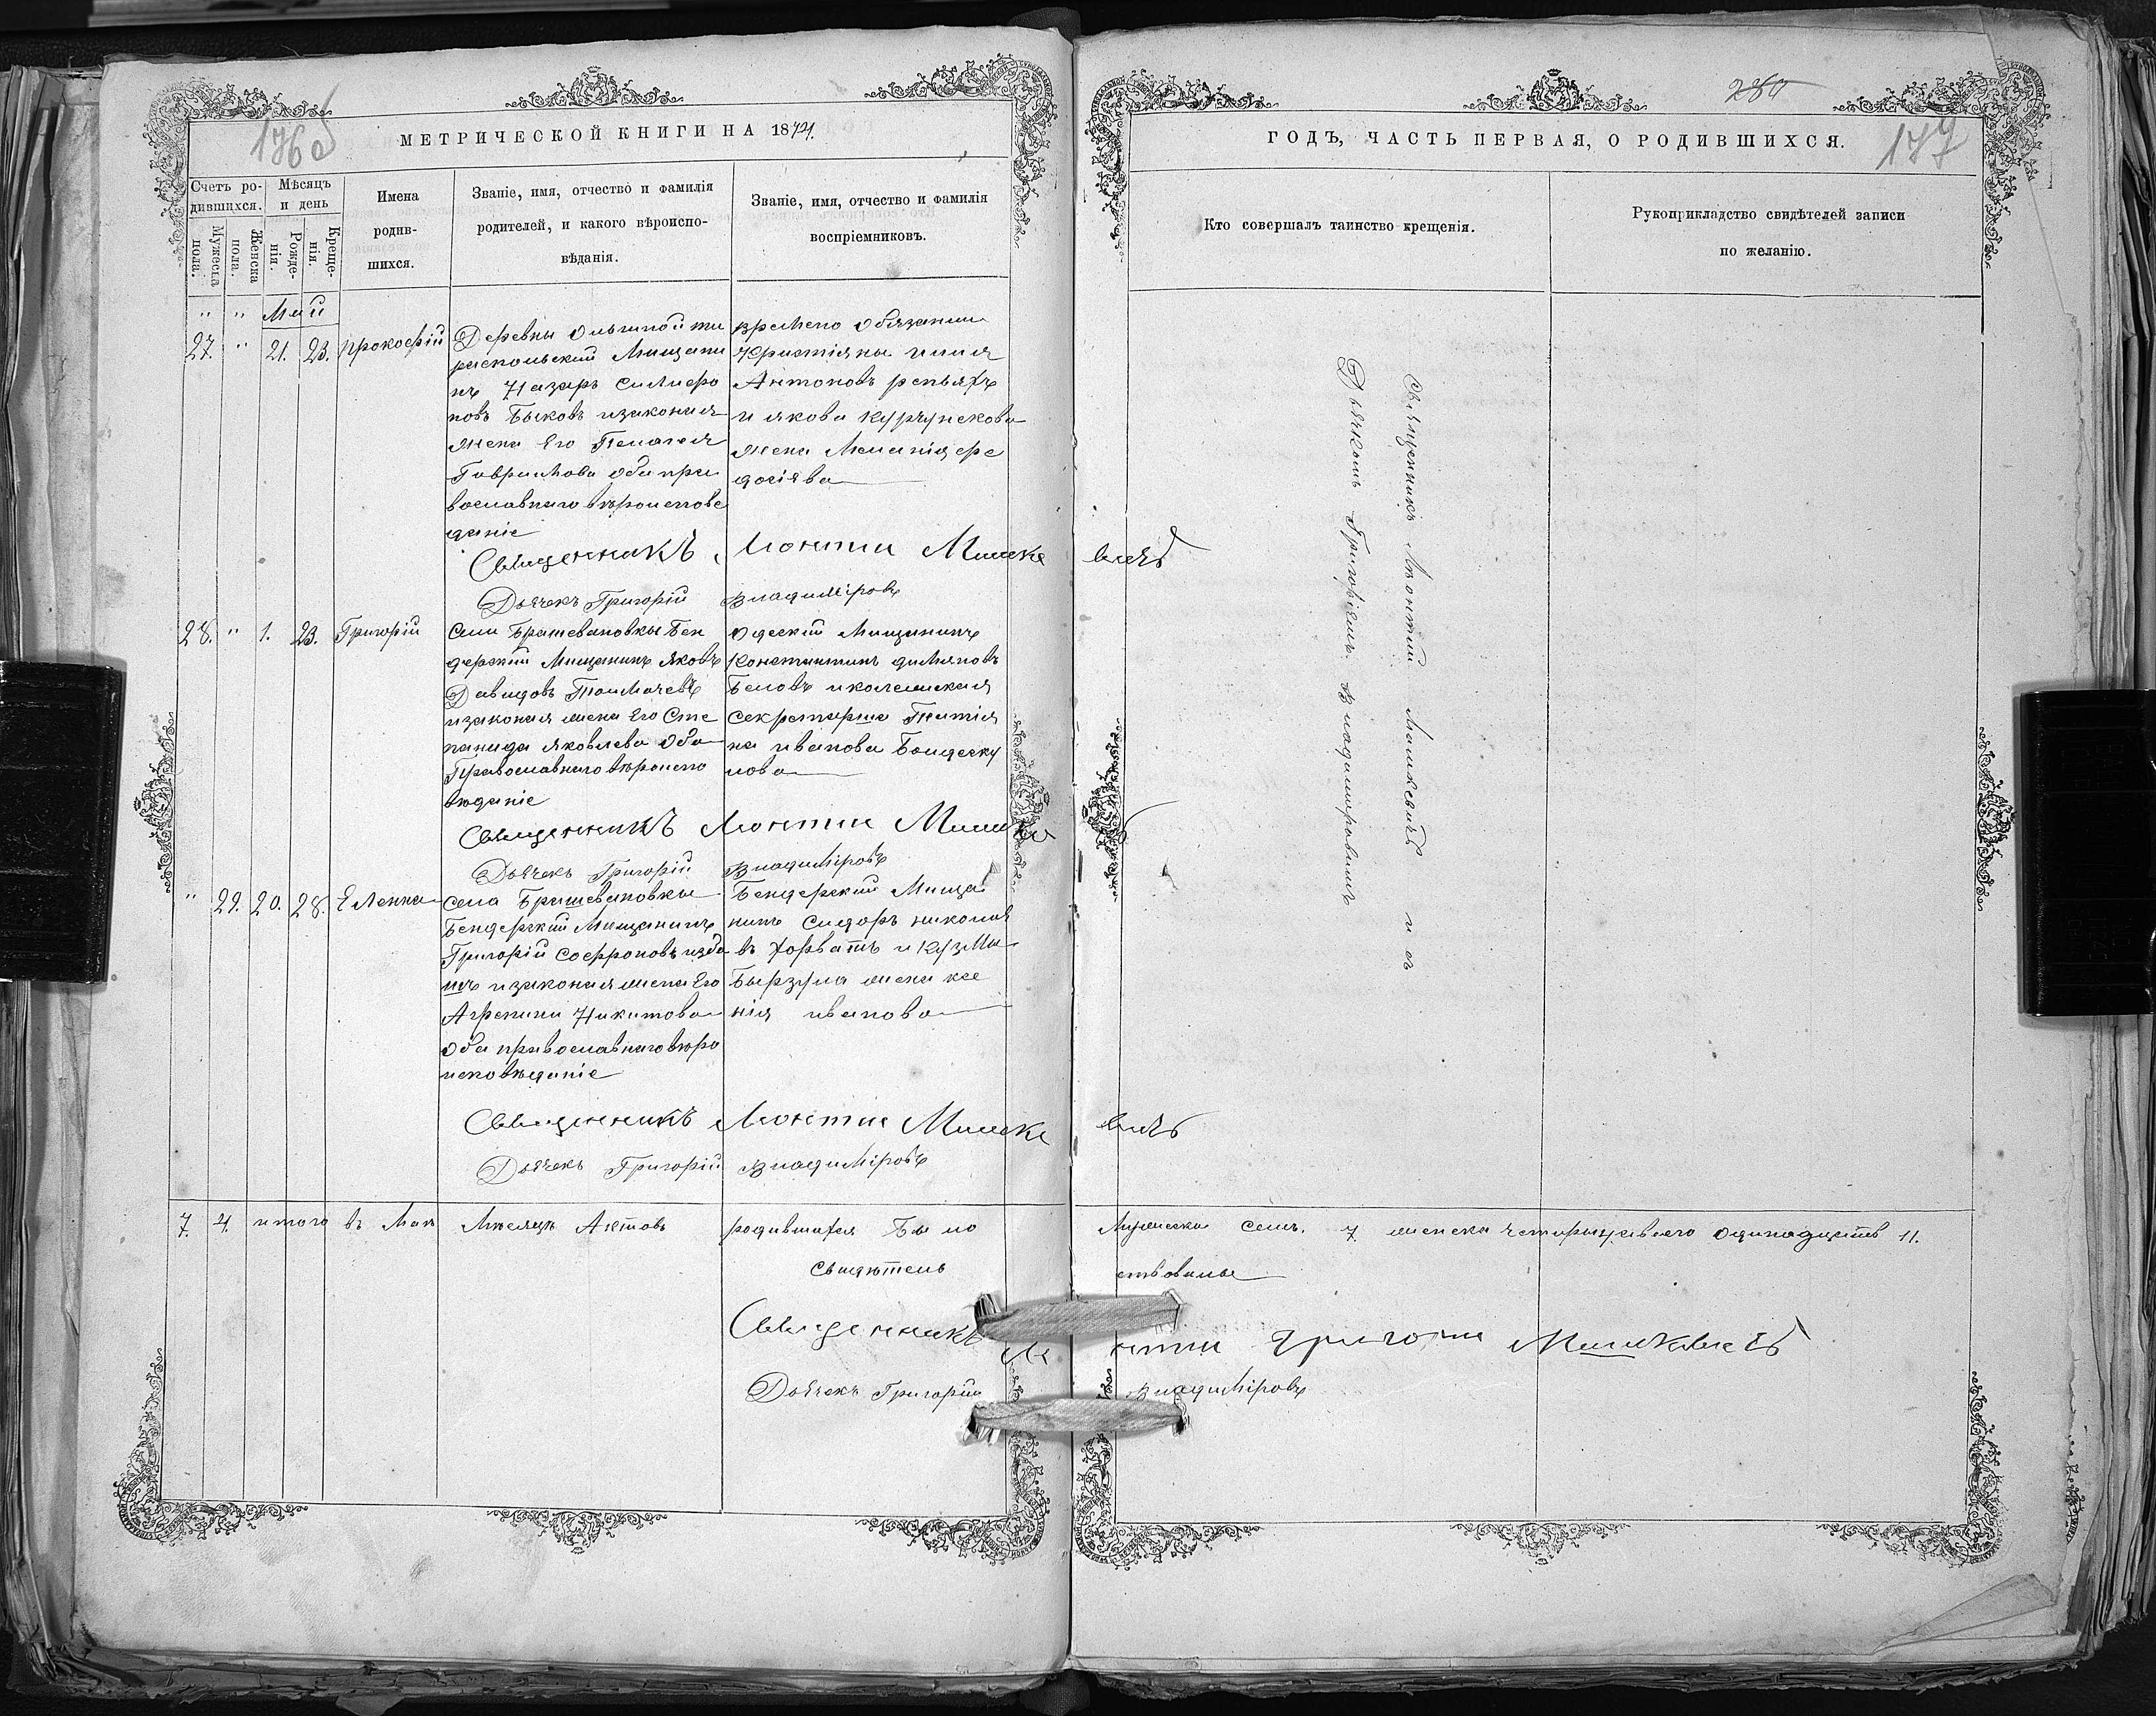 176 об
МЕТРИЧЕСКОЙ КНИГИ НА 1874
Счетъ ро-
дившихся.
Мужеска
пола.
Женска
пола.
Мѣсяцъ
и день
Рожде-
нія.
Креще-
нія.
Имена
родив-
шихся.
Званіе, имя, отчество и фамилія
родителей, и какого вѣроиспо-
вѣданія.
Званіе, имя, отчество и фамилія
воспріемниковъ.
" " Май
27. " 21. 23. Прокофій
Деревны Ольшной ти
распольский Мищани
нъ Назаръ Силифо
новъ Быковъ изаконая
жена Его Пелагея
Гаврилова оба пра
вославнаго вѣроиспове
даніе
времено обязании
Христіяны илия
Антоновъ репьяхъ
и якова Курчунскова
жена Меланія фе
досіява
Священникъ Леонтии Мишке
вичъ
Дьячекъ Григорій Владиміровъ
28. " 1. 23. Григорій
Сели Брашевановкы Бен
дерский Мищанинъ Яковъ
Давидовъ Толмачевъ
изаконая жена Его Сте
панида Яковлева Оба
Православнаго вѣроиспо
вѣданіе
Одеский Мищининъ
Константинъ димяновъ
Беловъ иколешская
Секретарша Татія
на иванова
лова
Священникъ Леонтии Мишке
Дьячекъ Григорій Владиміровъ
" 29. 20. 28. Еленна
Села Брашевановкы
Бендерский Мищанинъ
Григорій Софроновъ
изаконая жена Его
Агрепина Никитова
Оба православнаго вѣро
исковѣданіе
Бендерский Мища
нинъ Сидоръ николая
въ Хорватъ и Кузми
Бырзула жена ксе
нія иванова
Священникъ Леонтии Мишке
вичъ
Дьячекъ Григорій Владиміровъ
7. 4. итого въ Маи Мѣсяцъ Актовъ родившихся Было
Свидѣтель
Священникъ
Ле
Дьячекъ Григорій
280
177
ГОДЪ, ЧАСТЬ ПЕРВАЯ, О РОДИВШИХСЯ.
Кто совершалъ таинство крещенія.
Рукоприкладство свидѣтелей записи
по желанію.
Священникъ Леонтий Мишкевичъ и съ
Дьячкомъ Григоріемъ Владимировимъ
Мужеска семь. 7. женска четыри всего Одинадцать 11.
ствовалы
нтии Григори Мишкевичъ
Владиміровъ